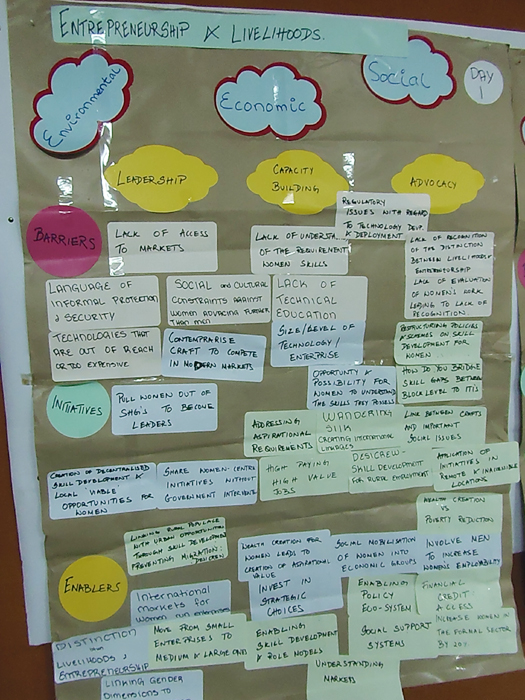 ENTREPRENEURSHIP & LIVELIHOODS.
Environmental
Economic
Social
DAY
1
LEADERSHIP
CAPACITY
BUILDING
ADVOCACY
REGULATORY
ISSUES WITH REGARD
TO TECHNOLOGY DEVP.
& DEPLOYMENT
BARRIERS
LACK OF ACCESS
TO MARKETS
LACK OF
OF THE REQUIREMENT
WOMEN SKILLS
LACK OF RECOGNITION
OF THE DISTINCTION
BETWEEN LIVELIHOODS &
ENTREPRENEURSHIP
LACK OF EVALUATION
OF WOMEN'S WORK
LEADING TO LACK OF
RECOGNITION.
LANGUAGE OF
INFORMAL PROTECTION
& SECURITY
SOCIAL AND CULTURAL
CONSTRAINTS AGAINST
WOMEN ADVANCING FURTHER
THAN MEN
LACK OF
TECHNICAL
EDUCATION
SIZE/LEVEL OF
TECHNOLOGY/
ENTERPRISE
TECHNOLOGIES THAT
ARE OUT OF REACH
OR TOO EXPENSIVE
CONTEMPRARISE
CRAFT TO COMPETE
IN MODERN MARKETS
RESTRUCTURING POLICIES
& SCHEMES ON SKILL
DEVELOPMENT FOR
WOMEN
OPPORTUNITY &
POSSIBILITY FOR
WOMEN TO UNDERSTAND
THE SKILLS THEY POSSESS
HOW DO YOU BRIDGE
SKILL GAPS BETWEEN
BLOCK LEVEL TO ITIS
INITIATIVES
PULL WOMEN OUT OF
SHG'S TO BECOME
LEADERS
ADDRESSING
ASPIRATIONAL
REQUIREMENTS
WANDERING
SILK
CREATING INTERNATIONAL
LINKAGES
LINK BETWEEN CRAFTS
AND IMPORTANT
SOCIAL ISSUES
CREATION OF DECENTRALISED
SKILL DEVELOPMENT &
LOCAL VIABLE
OPPORTUNITIES FOR
WOMEN
SHARE WOMEN-CENTRIC
INITIATIVES WITHOUT
GOVERNMENT
HIGH PAYING
HIGH VALUE
JOBS
DESICREW-
SKILL DEVELOPMENT
FOR RURAL EMPLOYMENT
APPLICATION OF
INITIATIVES IN
REMOTE &
LOCATIONS
WEALTH CREATION
VS
POVERTY REDUCTION
LINKING RURAL POPULACE
WITH URBAN OPPORTUNITIES
THROUGH SKILL DEVELOPMENT
PREVENTING MIGRATION:
WEALTH CREATION FOR
WOMEN LEADS TO
CREATION OF ASPIRATIONAL
VALUE
SOCIAL MOBILISATION
OF WOMEN INTO
ECONOMIC GROUPS
INVOLVE MEN
TO INCREASE
WOMEN'S EMPLOYABILITY
ENABLERS
International
markets for
Women run enterprises
INVEST IN
STRATEGIC
CHOICES
ENABLING
POLICY
ECO-SYSTEM
SOCIAL SUPPORT
SYSTEMS
FINANCIAL
CREDIT
ACCESS
INCREASE WOMEN IN
THE FORMAL SECTOR
BY 20%
DISTINCTION
LIVELIHOODS &
ENTREPRENEURSHIP
MOVE FROM SMALL
ENTERPRISES TO
MEDIUM & LARGE ONES
ENABLING
SKILL DEVELOPMENT
& ROLE MODELS
LINKING GENDER
DIMENSIONS TO
UNDERSTANDING
MARKETS